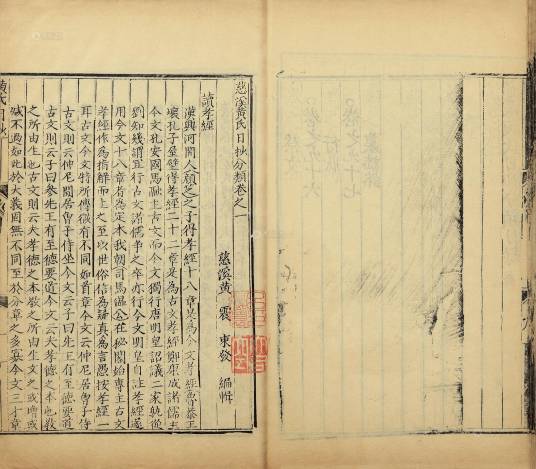 慈溪黃氏日抄分類卷之一
慈溪黃 震 東發 編輯
讀孝經
漢興河間人顏芝之子得孝經十八章是為今文孝經魯恭王
壞孔子屋壁得孝經二十二章是為古文孝經鄭康成諸儒主
今文孔安國馬融主古文而今文獨行唐明皇詔議二家孰從
劉知幾謂宜行古文諸儒爭之卒亦行今文明皇自註孝經遂
用今文十八章者為定本我朝司馬溫公在秘閣始專主古文
孝經作為指解而上之至以世俗信偽疑真為言愚按孝經一
耳古文今文特所傳微有不同如首章今文云仲尼居曾子侍
古文則云仲尼閒居曾子侍坐今文云子曰先王有至德要道
古文則云子曰參先王有至德要道今文云夫孝德之本也教
之所由生也古文則云夫孝德之本教之所由生文之或增或
減不過如此於大義固無不同至於分章之多寡今文三才章
黃氏日抄